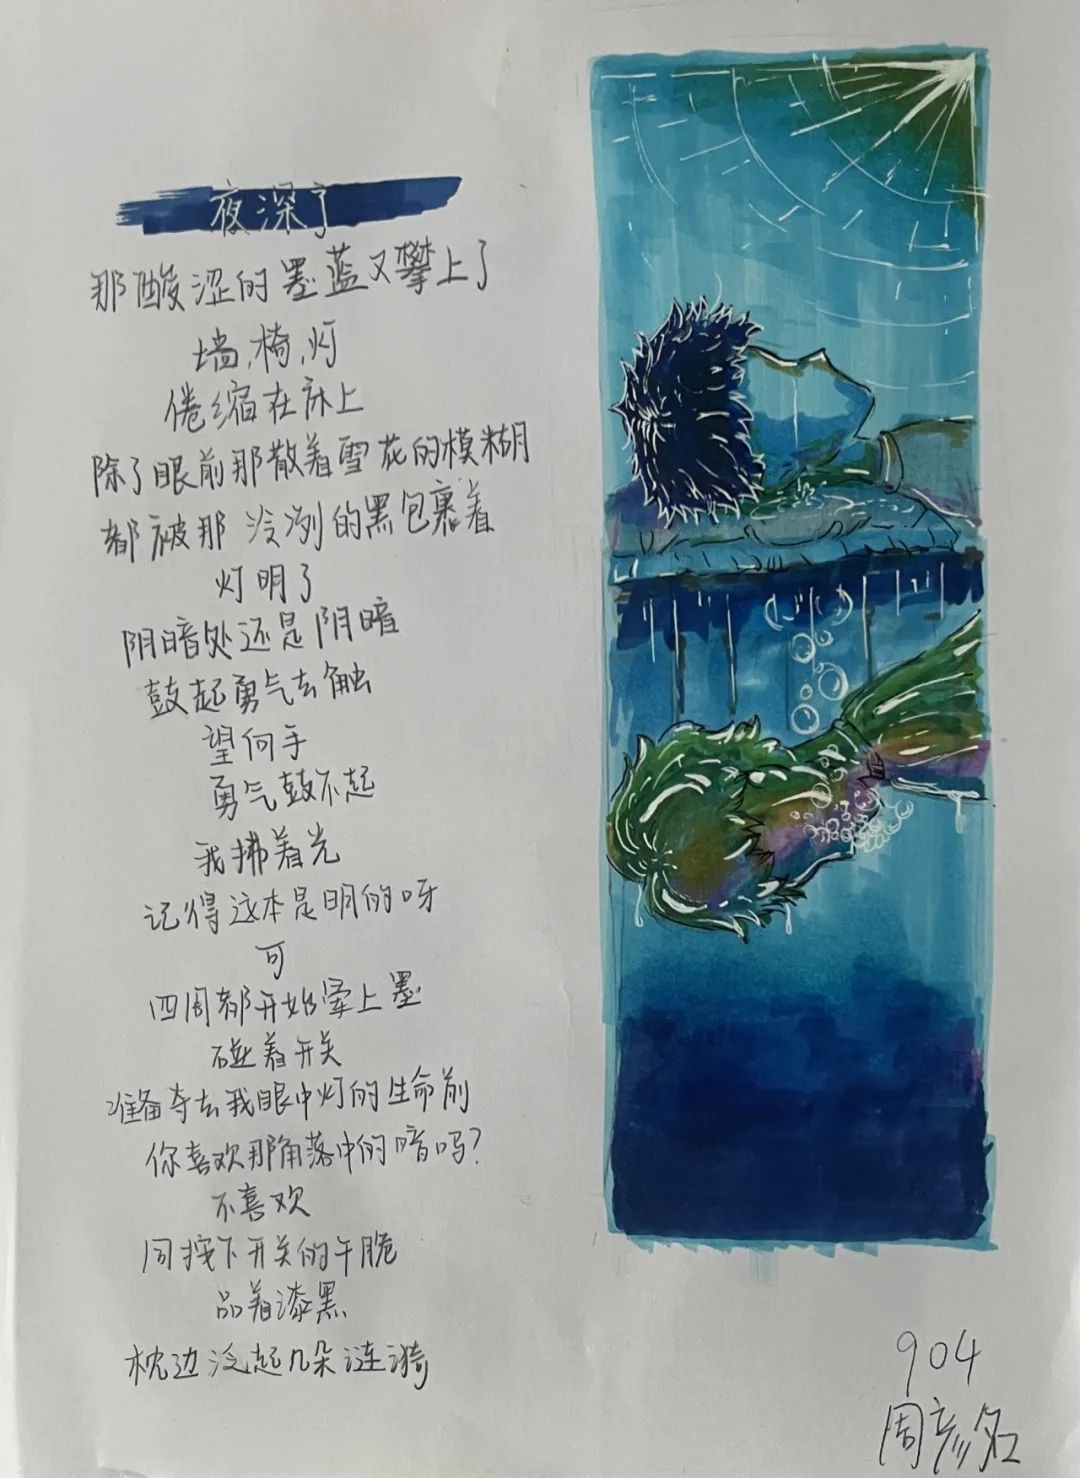 夜深了
那酸涩的墨蓝又攀上了
墙,椅,灯
倦缩在床上
除了眼前那散着雪花的模糊
都被那冷冽的黑包裹着
灯明了
阴暗处还是阴暗
鼓起勇气去触
望向手
勇气鼓不起
我拂着光
记得这本是明的呀
可
四周都开始晕上墨
碰着开关
准备夺去我眼中灯的生命前
你喜欢那角落中的暗吗?
不喜欢
同按下开关的干脆
品着漆黑
枕边泛起几朵涟漪
904
周彦名